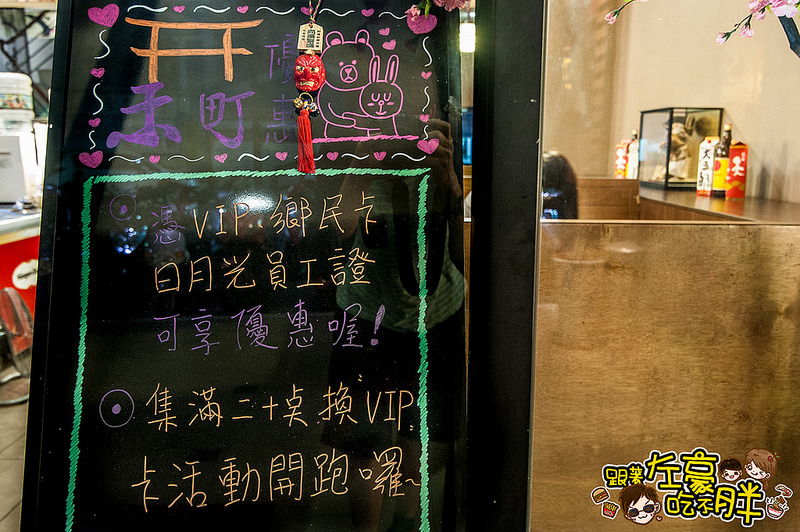 禾町
優惠
憑 VIP 鄉民卡
日月光員工證
可享優惠喔!
集滿二十桌換"VIP"
卡活動開跑囉~
跟著左豪吃不胖